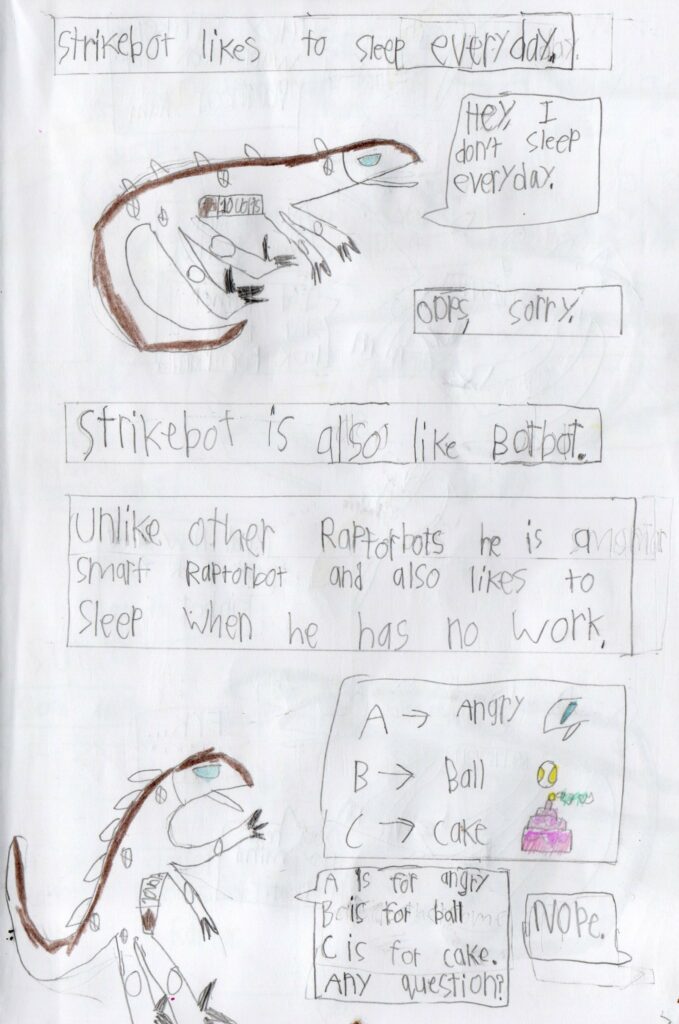 Strikebot likes to sleep everyday.
Hey, I
don't sleep
everyday.
Oops, sorry.
Strikebot is also like Botbot.
Unlike other Raptorbots he is a
smart Raptorbot and also likes to
sleep when he has no work.
A → Angry
B → Ball
C → cake
A is for angry
B is for ball
C is for cake.
Any question?
Nope.